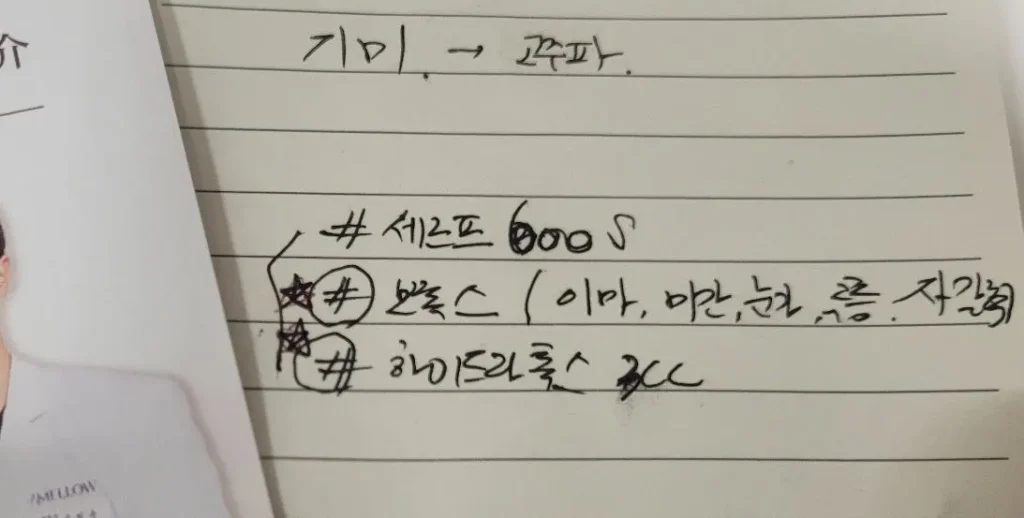 介
기미. → 고주파.
# 세르프 600 S
# 보톡스 (이마, 미간, 눈가, 콧등, 자갈턱)
# 하이드라톡스 3CC
MELLOW